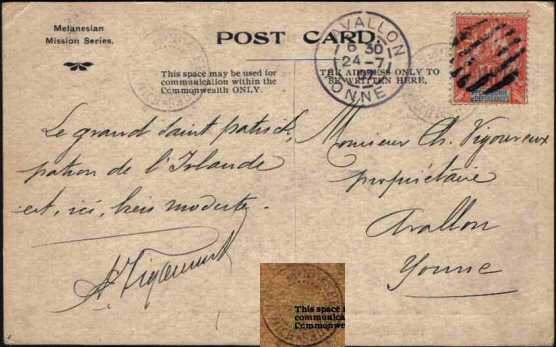 Melanesian
Mission Series.
POST CARD.
This space may be used for
communication within the
Commonwealth ONLY.
THE ADDRESS ONLY TO
BE WRITTEN HERE.
AVALLON
6 30
24-7
YONNE
Le grand Saint Patrick,
patron de l'Irlande
est, ici, bien modeste.
Monsieur Ch. Vigoureux
propriétaire
Avallon
Yonne
This space
communica
Commonwe